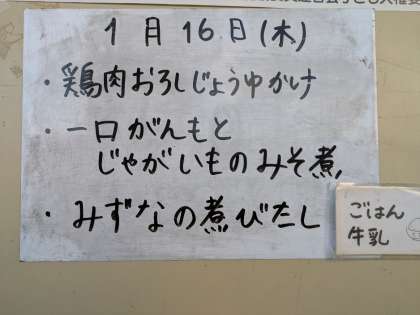 1月16日(木)
・鶏肉おろしじょうゆかけ
・一口がんもと
じゃがいものみそ煮
・みずなの煮びたし
ごはん
牛乳